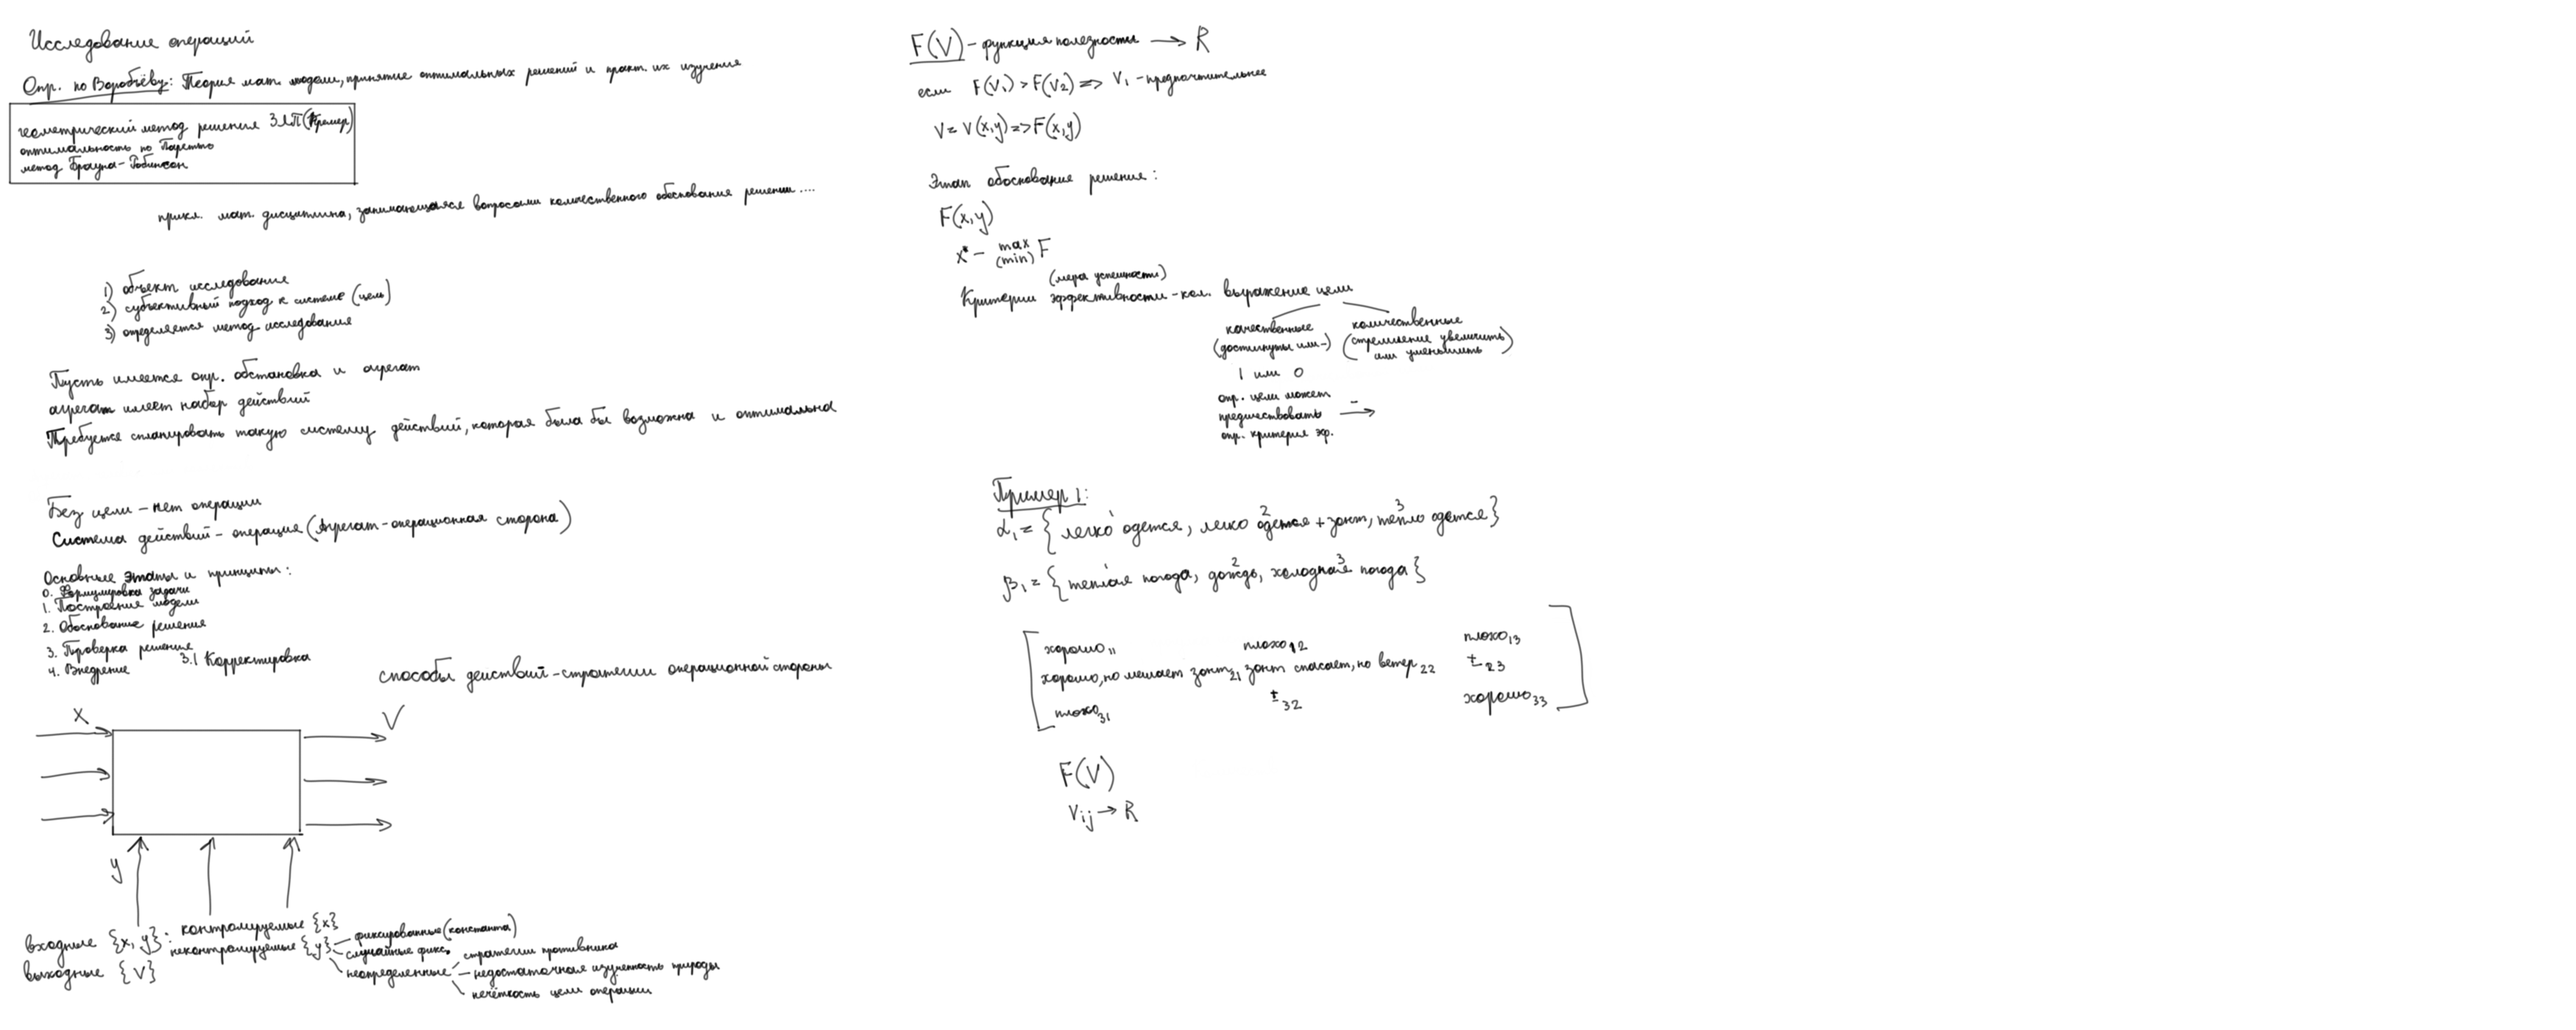 Исследование операций
Опр. по Воробьёву: Теория мат. модели, принятие оптимальных решений и практ. их изучения
геометрический метод решения ЗЛП (Кремер)
оптимальность по Паретто
метод Брауна-Робинсон
прикл. мат. дисциплина, занимающаяся вопросами количественного обоснование решении ....
1) объект исследования
2) субъективный подход к системе (цель)
3) определяется метод исследования
Пусть имеется опр. обстановка и агрегат
агрегат имеет набор действий
Требуется спланировать такую систему действий, которая была бы возможна и оптимальна
Без цели - нет операции
Система действий - операция (Агрегат-операционная сторона)
Основные этапы и принципы:
0. Формулировка задачи
1. Построение модели
2. Обоснование решения
3. Проверка решения
3.1 Корректировка
4. Внедрение
способы действий - стратегии операционной стороны
x
V
y
входные {x, y}: контролируемые {x}
неконтролируемые {y}
фиксированные (константа)
случайные фикс.
неопределенные
стратегии противника
недостаточная изученность природы
нечёткость цели операции
выходные {V}
F(V) - функция полезности → R
если F(V1) > F(V2) => V1 - предпочтительнее
V = V(x,y) => F(x,y)
Этап обоснование решения:
F(x,y)
x* - max F
(min)
(мера успешности)
Критерии эффективности - кол. выражение цели
качественные
(достигнуты или -)
1 или 0
количественные
(стремление увеличить
или уменьшить)
опр. цели может
предшествовать
опр. критерия эф.
- →
Пример 1:
α1 = { легко одется, легко одется + зонт, тепло одется }
1 2 3
β1 = { теплая погода, дождь, холодная погода }
1 2 3
хорошо11 плохо12 плохо13
хорошо, но мешает зонт21 зонт спасает, но ветер22 ±23
плохо31 ±32 хорошо33
F(V)
Vij → R